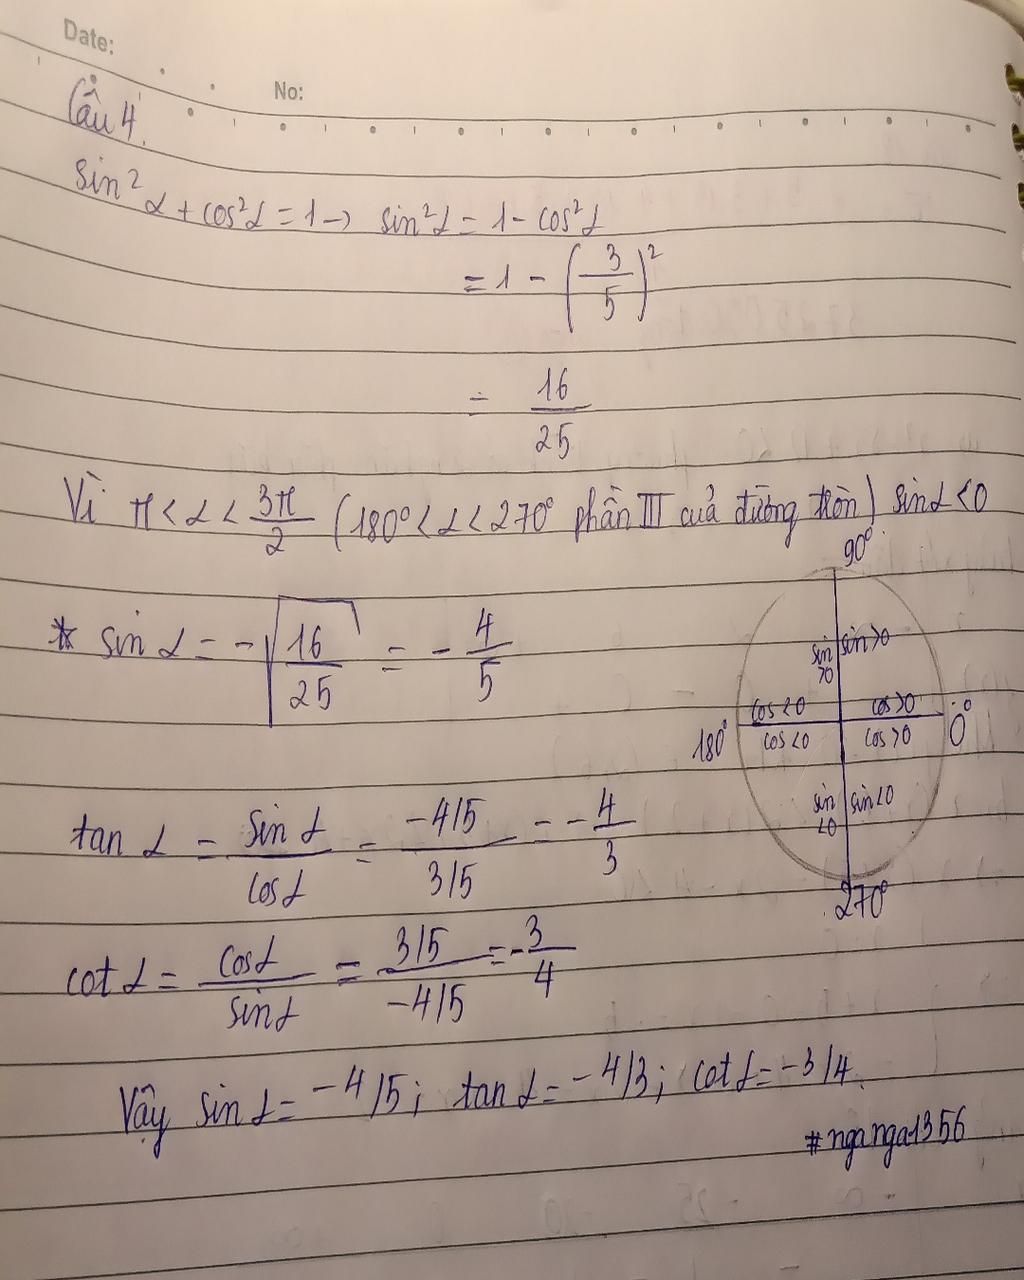 Date:
No:
Câu 4.
sin²α + cos²α = 1 → sin²α = 1 - cos²α
= 1 - (3/5)²
= 16/25
Vì π < α < 3π/2 (180° < α < 270° phần III cuả đường tròn) sinα < 0
* sin α = -√(16/25) = - 4/5
90°
sin >0
sin >0
cos <0
cos >0
180°
0°
cos <0
cos >0
sin <0
sin <0
270°
tan α = sin α / cos α = -4/5 / 3/5 = - 4/3
cot α = cos α / sin α = 3/5 / -4/5 = - 3/4
Vậy sin α = -4/5; tan α = -4/3; cot α = -3/4.
#nganga1356